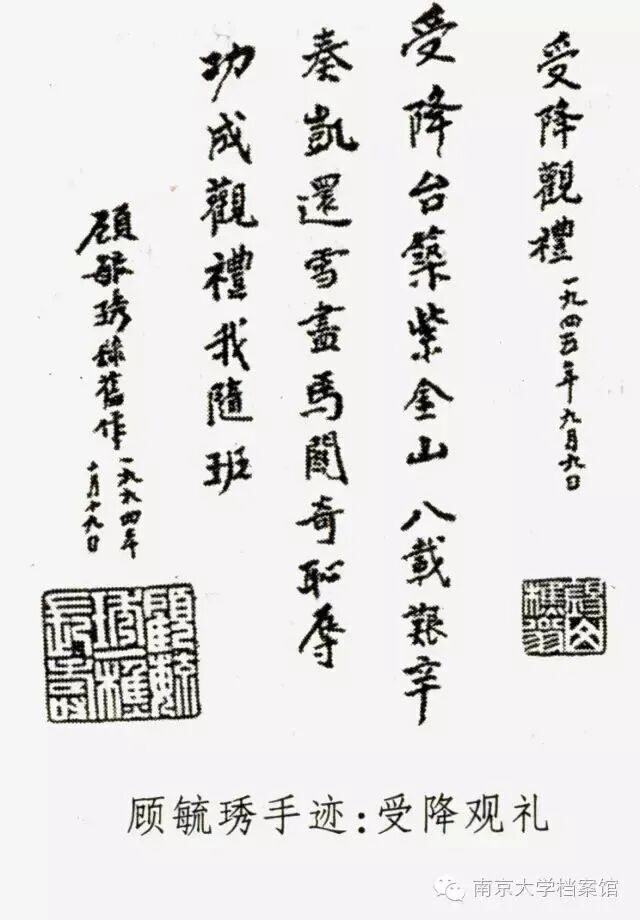 受降觀禮 一九四五年九月九日
受降台築紫金山 八載艱辛
奏凱還 雪盡馬關奇恥辱
功成觀禮我隨班
顧毓琇錄舊作 一九九四年
十月十九日
顧毓
琇一樵
長壽
顾毓琇手迹:受降观礼
南京大学档案馆